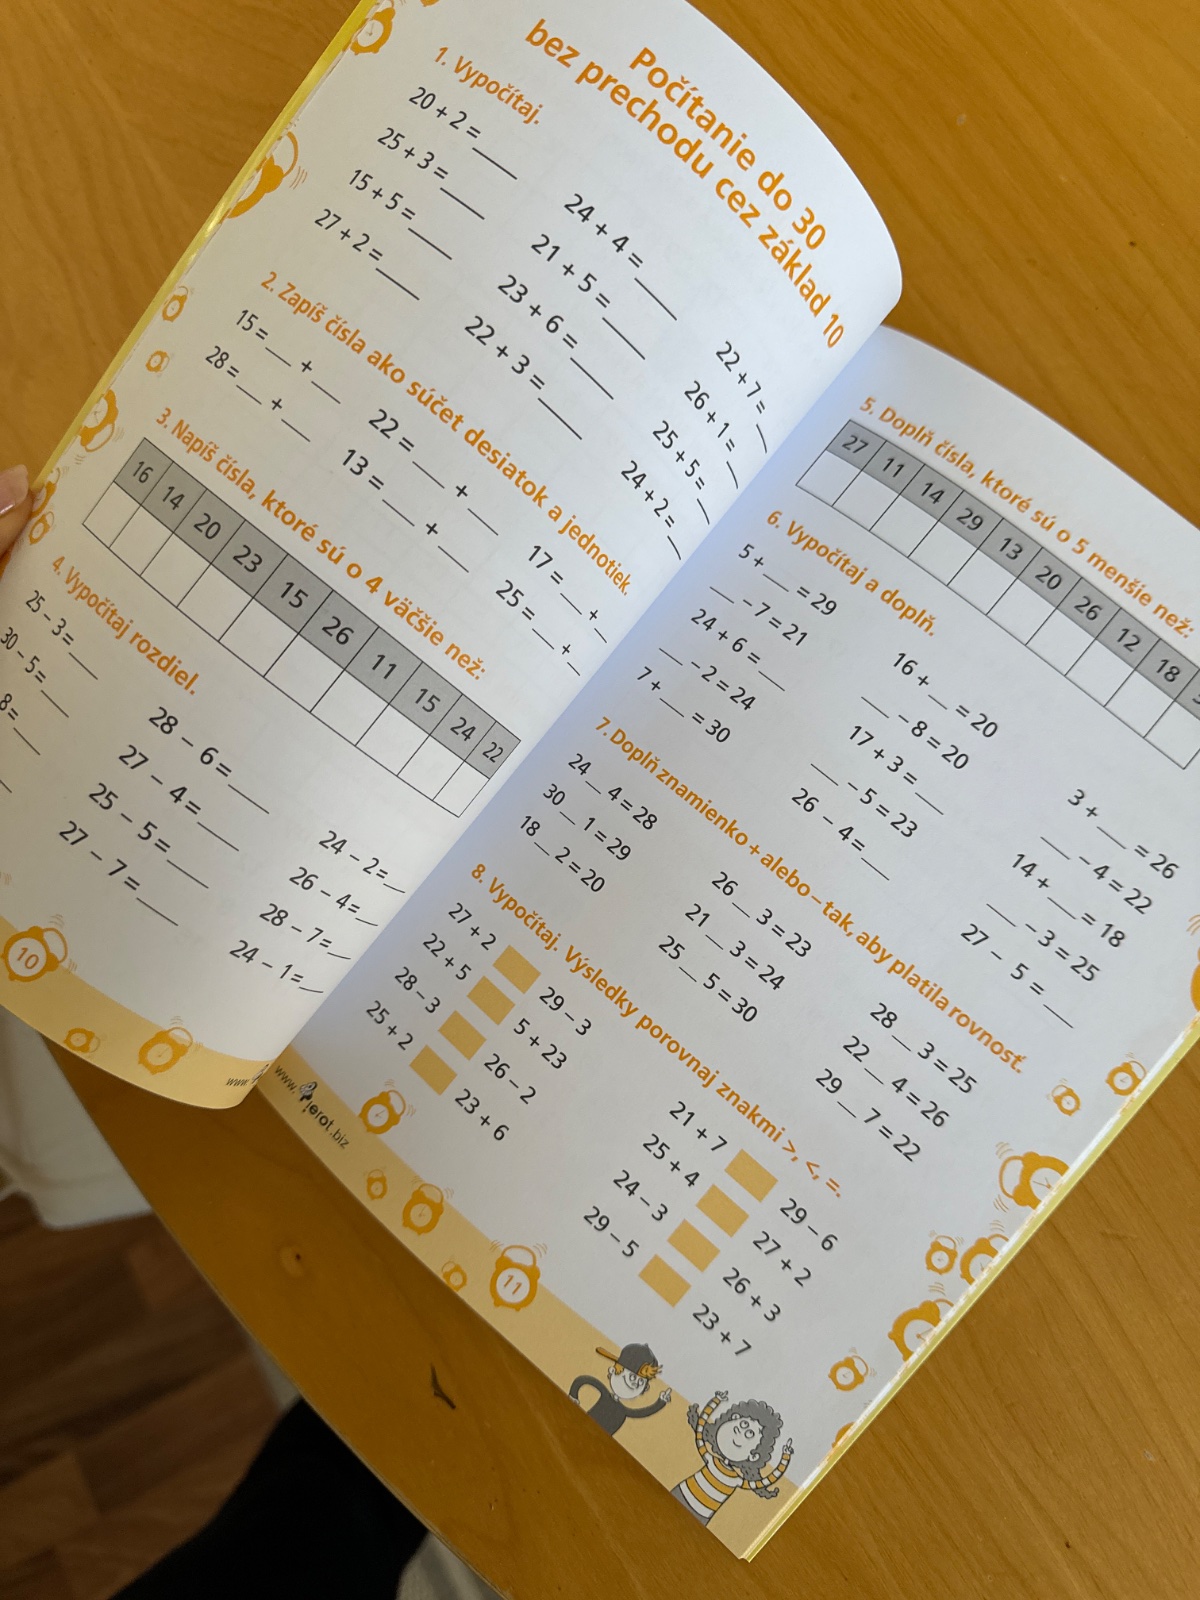 Počítanie do 30
bez prechodu cez základ 10
1. Vypočítaj.
20 + 2 = ____ 24 + 4 = ____ 22 + 7 = ____
25 + 3 = ____ 21 + 5 = ____ 26 + 1 = ____
15 + 5 = ____ 23 + 6 = ____ 25 + 5 = ____
27 + 2 = ____ 22 + 3 = ____ 24 + 2 = ____
2. Zapíš čísla ako súčet desiatok a jednotiek.
15 = ___ + ___ 22 = ___ + ___ 17 = ___ + ___
28 = ___ + ___ 13 = ___ + ___ 25 = ___ + ___
3. Napíš čísla, ktoré sú o 4 väčšie než:
16 14 20 23 15 26 11 15 24 22
4. Vypočítaj rozdiel.
25 – 3 = ____ 28 – 6 = ____ 24 – 2 = ____
30 – 5 = ____ 27 – 4 = ____ 26 – 4 = ____
8 = ____ 25 – 5 = ____ 28 – 7 = ____
27 – 7 = ____ 24 – 1 = ____
10
www.
5. Doplň čísla, ktoré sú o 5 menšie než:
27 11 14 29 13 20 26 12 18
6. Vypočítaj a doplň.
5 + ___ = 29 16 + ___ = 20 3 + ___ = 26
___ – 7 = 21 ___ – 8 = 20 ___ – 4 = 22
24 + 6 = ___ 17 + 3 = ___ 14 + ___ = 18
___ – 2 = 24 ___ – 5 = 23 ___ – 3 = 25
7 + ___ = 30 26 – 4 = ___ 27 – 5 = ___
7. Doplň znamienko + alebo – tak, aby platila rovnosť.
24 __ 4 = 28 26 __ 3 = 23 28 __ 3 = 25
30 __ 1 = 29 21 __ 3 = 24 22 __ 4 = 26
18 __ 2 = 20 25 __ 5 = 30 29 __ 7 = 22
8. Vypočítaj. Výsledky porovnaj znakmi >, <, =.
27 + 2 29 – 3 21 + 7 29 – 6
22 + 5 5 + 23 25 + 4 27 + 2
28 – 3 26 – 2 24 – 3 26 + 3
25 + 2 23 + 6 29 – 5 23 + 7
www.Pierot.biz
11